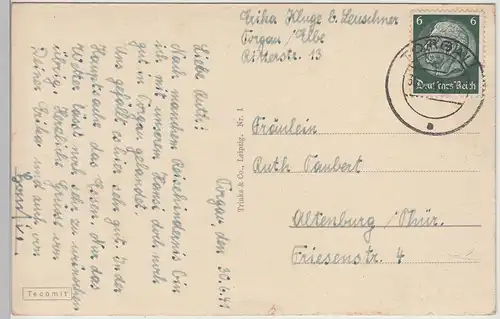 Erika Kluge b. Leuschner
Torgau/Elbe
Ritterstr. 13
6 6
Deutsches Reich
TORGAU
Torgau, den 30.6.41
Liebe Ruth!
Nach manchem Reisehindernis bin
ich mit unserem Hansi doch noch
gut in Torgau gelandet.
Uns gefällt es hier sehr gut. In der
Hauptsache das Essen. Nur das
Wetter lässt noch sehr zu wünschen
übrig. Herzliche Grüsse von
Deiner Erika und auch von
Fräulein
Ruth Taubert
Altenburg/Thür.
Friesenstr. 4
Trinks & Co., Leipzig. Nr. 1
Tecomit